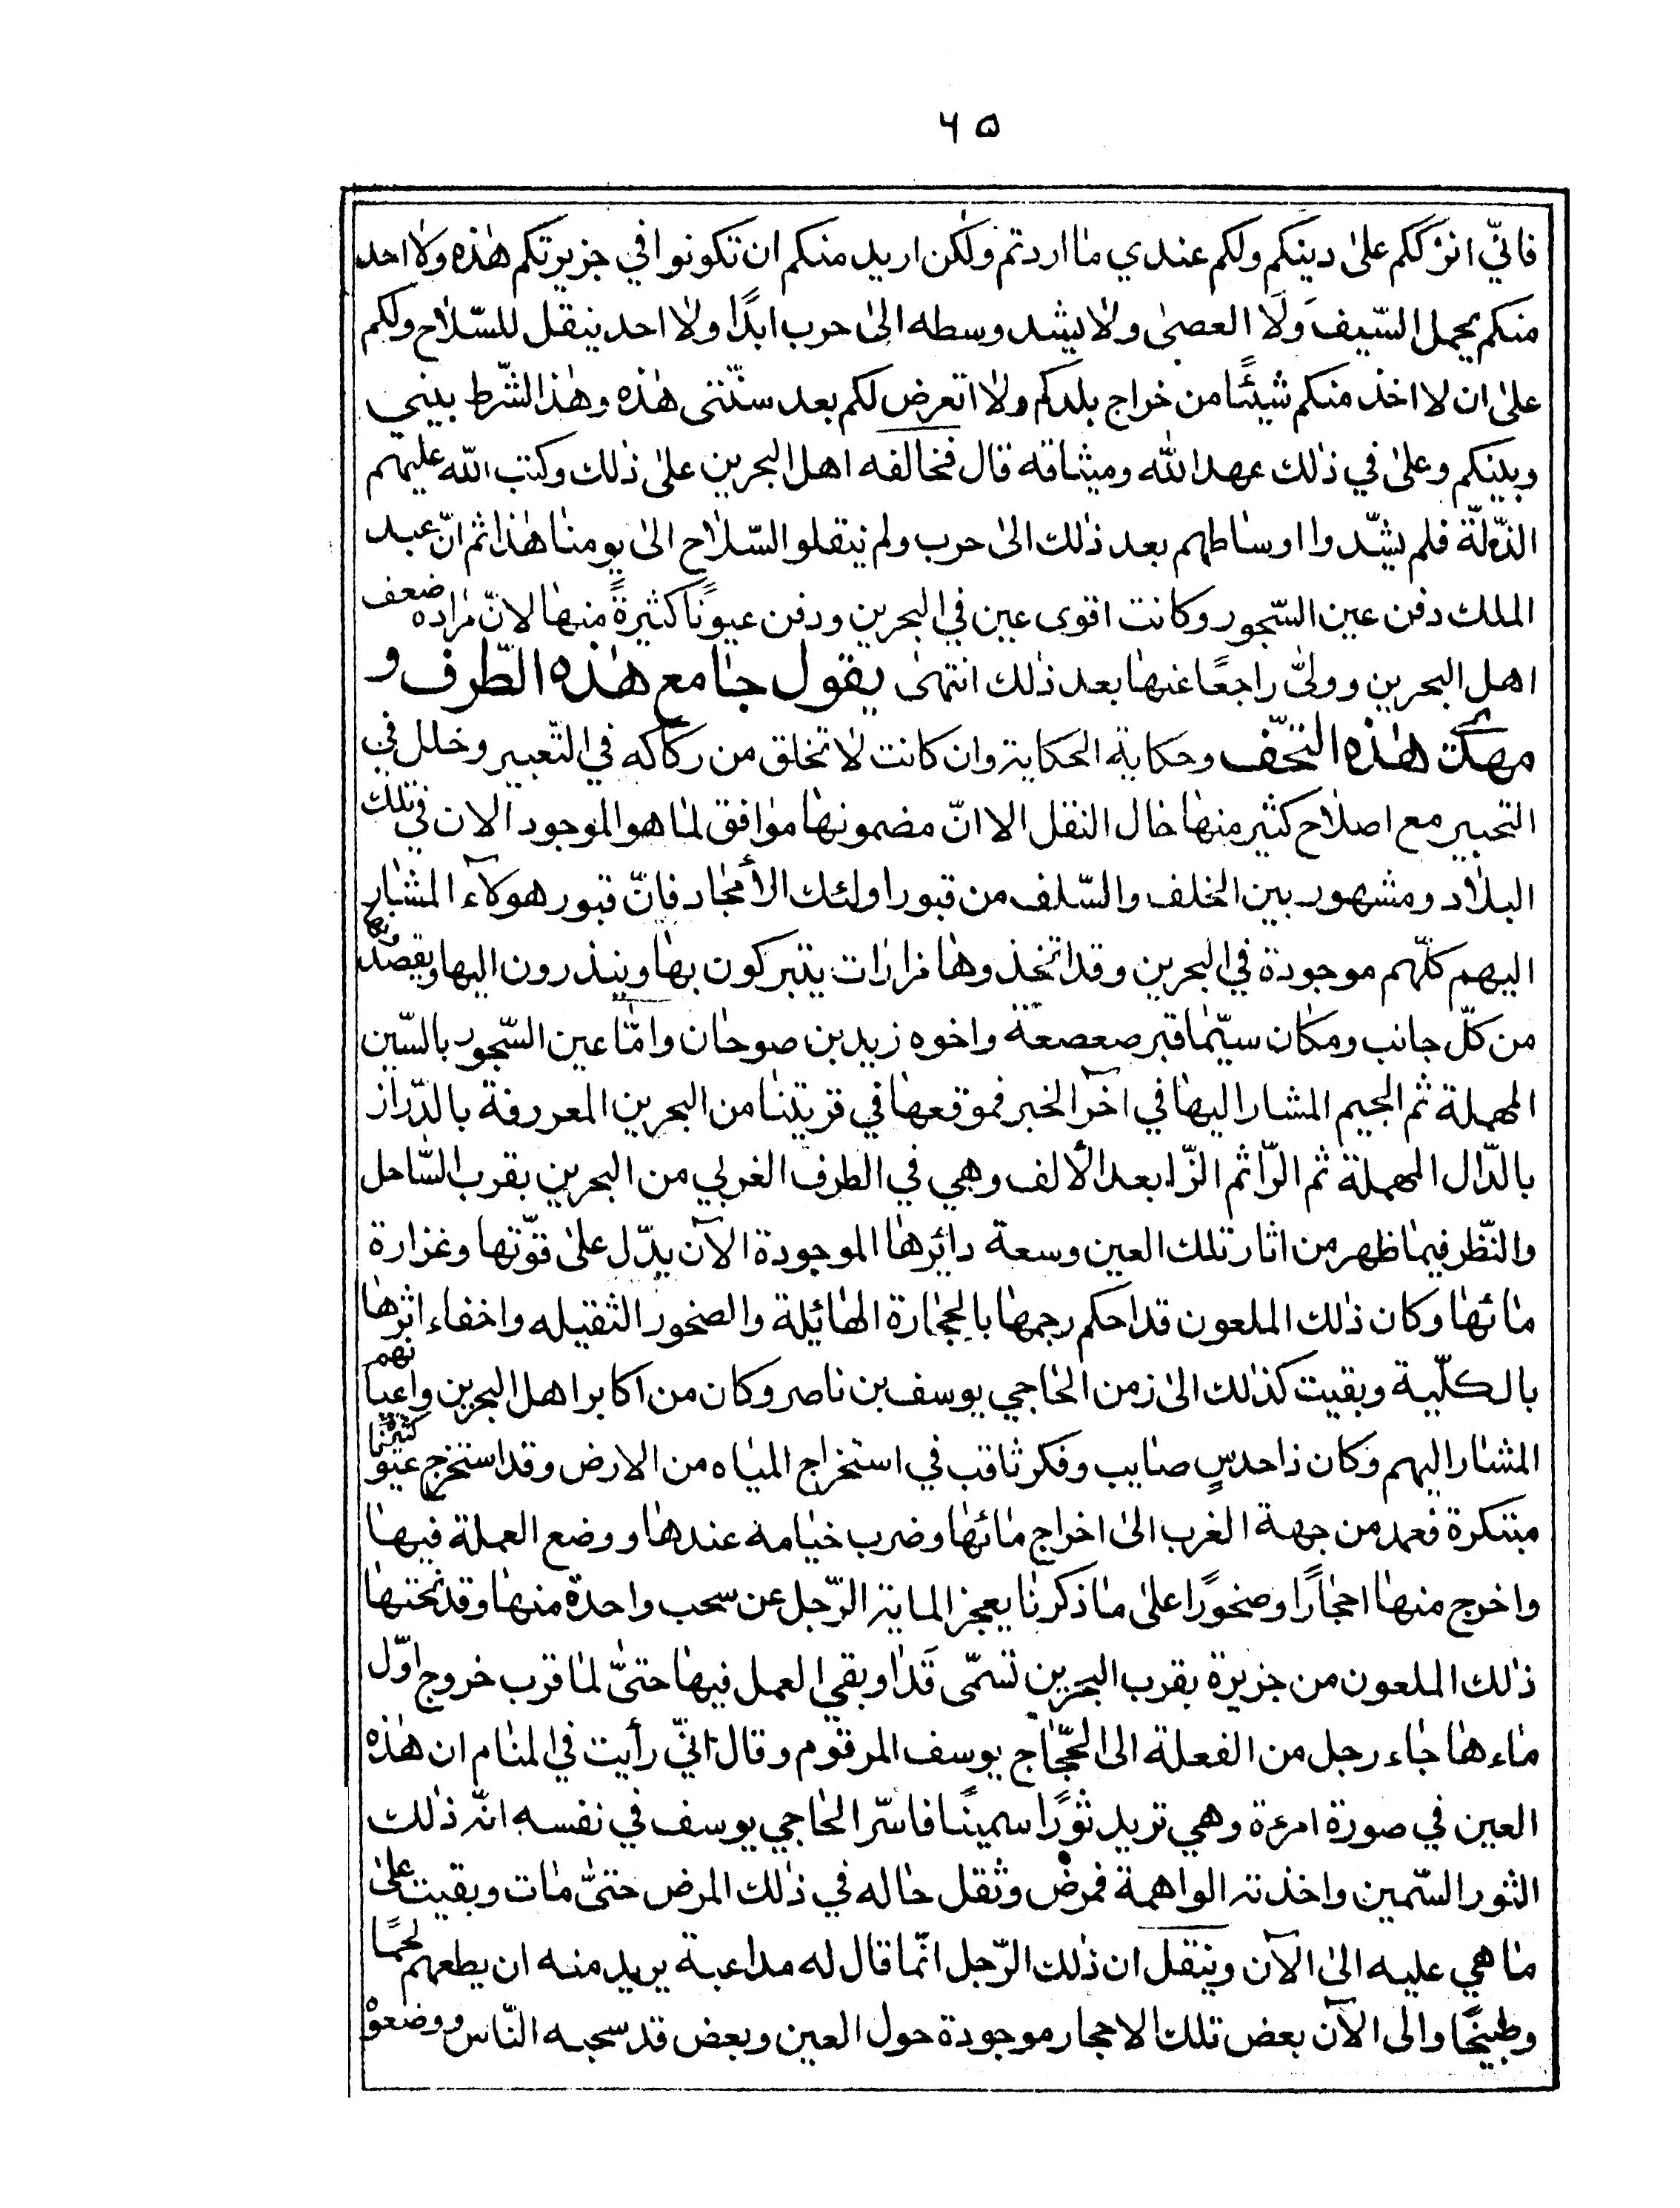 ۶۵
فانّي اترككم على دينكم ولكم عندي ما اردتم ولكن اريد منكم ان تكونوا في جزيرتكم هذه ولا احد
منكم يحمل السّيف ولا العصى ولا يشد وسطه الى حرب ابدًا ولا احد ينقل للسّلاح ولكم
على ان لا اخذ منكم شيئًا من خراج بلدكم ولا اتعرض لكم بعد سنّتى هذه وهذا الشّرط بيني
وبينكم وعلى في ذلك عهد الله وميثاقه قال فخالفه اهل البحرين على ذلك وكتب الله عليهم
الذّلّة فلم يشّدوا اوساطهم بعد ذلك الى حرب ولم ينقلو السّلاح الى يومنا هذا ثم انّ عبد
الملك دفن عين السّجور وكانت اقوى عين في البحرين ودفن عيونًا كثيرةً منها لانّ مراده ضعف
اهل البحرين وولىّ راجعًا عنها بعد ذلك انتهى يقول جامع هذه الطّرف و
هذه التّحّف وحكاية الحكاية وان كانت لا تخلق من ركاكه في التّعبير وخلل في
التحبير مع اصلاح كثير منها خال النقل الا انّ مضمونها موافق لما هو الموجود الان في تلك
البلاد ومشهور بين الخلف والسّلف من قبور اولئك الأمجاد فانّ قبور هولآء المشار
اليهم كلّهم موجودة في البحرين وقد اتخذوها مزارات يتبركون بها وينذرون اليها ويقصدونها
من كلّ جانب ومكان سيّما قبر صعصعة واخوه زيد بن صوحان وامّا عين السّجور بالسّين
المهملة ثم الجيم المشار اليها في اخر الخبر فموقعها في قريتنا من البحرين المعروفة بالدّراز
بالدّال المهملة ثم الرّا ثم الزّا بعد الألف وهي في الطرف الغربي من البحرين بقرب السّاحل
والنّظر فيما ظهر من اثار تلك العين وسعة دائرها الموجودة الآن يدّل على قوّتها وغزارة
مائها وكان ذلك الملعون قد احكم رجمها بالحجارة الهائلة والصخور الثقيله واخفاء اثرها
بالكلّية وبقيت كذلك الى زمن الحاجي يوسف بن ناصر وكان من اكابر اهل البحرين واعيانهم
المشار اليهم وكان ذا حدسٍ صايب وفكر ثاقب في استخراج المياه من الارض وقد استخرج عيونًا كثيرة
مبتكرة فعمد من جهة الغرب الى اخراج مائها وضرب خيامه عندها ووضع العملة فيها
واخرج منها احجارًا وصخورًا على ما ذكرنا يعجز الماية الرّجل عن سحب واحدة منها وقد نحتها
ذلك الملعون من جزيرة بقرب البحرين تسمّى قَدا وبقي العمل فيها حتىّ لما قرب خروج اوّل
ماءها جاء رجل من الفعلة الى الحجّاج يوسف المرقوم وقال انّي رأيت في المنام ان هذه
العين في صورة امرءة وهي تريد ثورًا سمينًا فاسّر الحاجي يوسف في نفسه انّه ذلك
الثور السّمين واخذته الواهمة فمرض وثقل حاله في ذلك المرض حتىّ مات وبقيت على
ما هي عليه الى الآن وينقل ان ذلك الرّجل انّما قال له مداعبة يريد منه ان يطعمهم لحمًا
وطبيخًا والى الآن بعض تلك الاحجار موجودة حول العين وبعض قد سحبه النّاس ووضعوْ